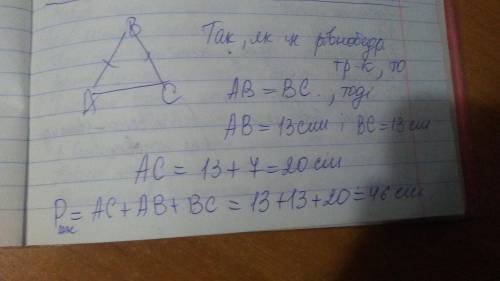 B
A
C
Так, як це рівнобедр
тр-к, то
AB = BC , тоді
AB = 13 см і BC = 13 см
AC = 13 + 7 = 20 см
P = AC + AB + BC = 13 + 13 + 20 = 46 см